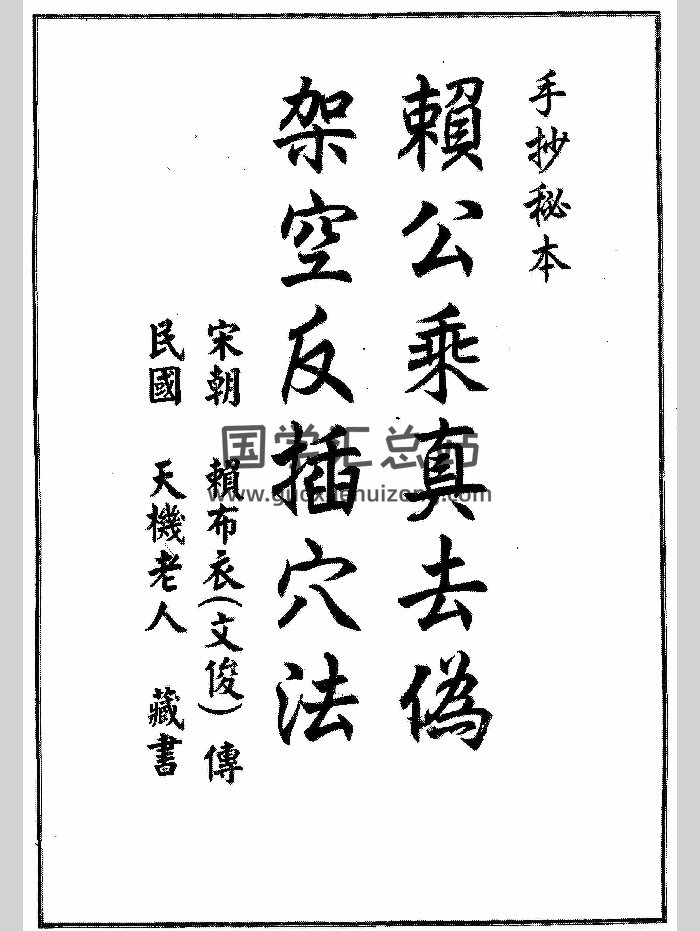 手抄秘本
賴公乘真去偽
架空反插穴法
宋朝 賴布衣(文俊)傳
民國 天機老人 藏書
国学汇总站
www.guoxuehuizong.com